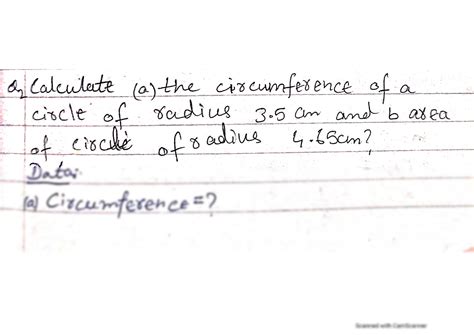 Q, Calculate (a) the circumference of a
circle of radius 3.5 cm and b area
of circle of radius 4.65cm?
Data:
(a) Circumference=?
Scanned with CamScanner